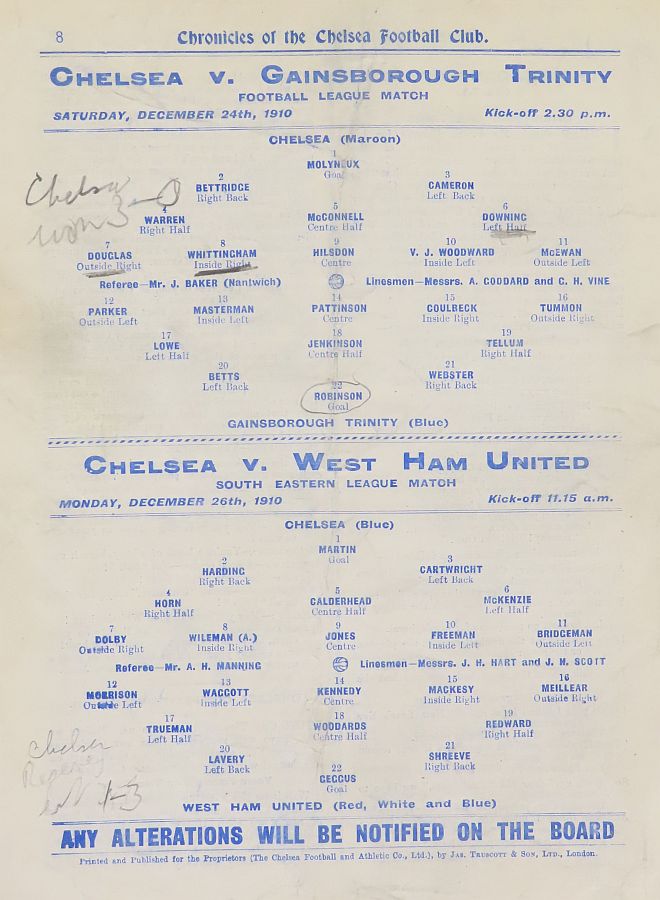 8 Chronicles of the Chelsea Football Club.
CHELSEA V. GAINSBOROUGH TRINITY
FOOTBALL LEAGUE MATCH
SATURDAY, DECEMBER 24th, 1910 Kick-off 2.30 p.m.
CHELSEA (Maroon)
1
MOLYNEUX
Goal
2 3
BETTRIDGE CAMERON
Right Back Left Back
Chelsea
won 3-0
4 5 6
WARREN McCONNELL DOWNING
Right Half Centre Half Left Half
7 8 9 10 11
DOUGLAS WHITTINGHAM HILSDON V. J. WOODWARD McEWAN
Outside Right Inside Right Centre Inside Left Outside Left
Referee—Mr. J. BAKER (Nantwich) Linesmen—Messrs. A. CODDARD and C. H. VINE
12 13 14 15 16
PARKER MASTERMAN PATTINSON COULBECK TUMMON
Outside Left Inside Left Centre Inside Right Outside Right
17 18 19
LOWE JENKINSON TELLUM
Left Half Centre Half Right Half
20 21
BETTS WEBSTER
Left Back Right Back
22
ROBINSON
Goal
GAINSBOROUGH TRINITY (Blue)
CHELSEA V. WEST HAM UNITED
SOUTH EASTERN LEAGUE MATCH
MONDAY, DECEMBER 26th, 1910 Kick-off 11.15 a.m.
CHELSEA (Blue)
1
MARTIN
Goal
2 3
HARDING CARTWRIGHT
Right Back Left Back
4 5 6
HORN CALDERHEAD McKENZIE
Right Half Centre Half Left Half
7 8 9 10 11
DOLBY WILEMAN (A.) JONES FREEMAN BRIDGEMAN
Outside Right Inside Right Centre Inside Left Outside Left
Referee—Mr. A. H. MANNING Linesmen—Messrs. J. H. HART and J. N. SCOTT
12 13 14 15 16
MORRISON WACCOTT KENNEDY MACKESY MEILLEAR
Outside Left Inside Left Centre Inside Right Outside Right
17 18 19
TRUEMAN WOODARDS REDWARD
Left Half Centre Half Right Half
20 21
LAVERY SHREEVE
Left Back Right Back
22
GECCUS
Goal
Chelsea
1-3
WEST HAM UNITED (Red, White and Blue)
ANY ALTERATIONS WILL BE NOTIFIED ON THE BOARD
Printed and Published for the Proprietors (The Chelsea Football and Athletic Co., Ltd.), by JAS. TRUSCOTT & SON, LTD., London.